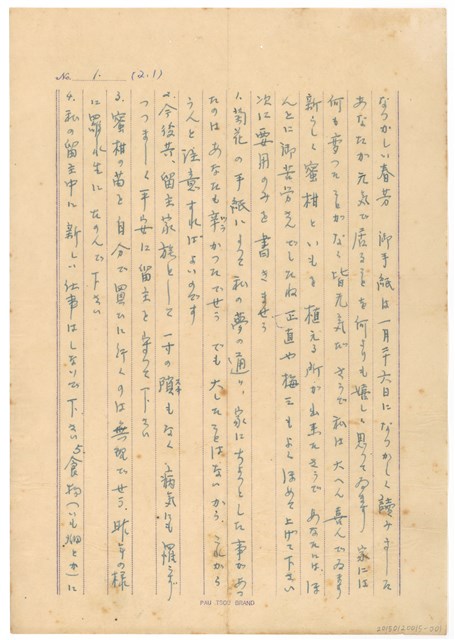 No. 1. (2.1)
なつかしい春芳 御手紙は一月二十六日になつかしく読みました
あなたが元気で居ることを何よりも嬉しく思つてゐます 家には
何も変つたことがなく皆元気ださうで私は大へん喜んでゐます
新らしく蜜柑といもを植える所が出来たさうで あなたには ほ
んとに御苦労さんでしたね 正直や梅子もよくほめて上げて下さい
次に要用のみを書きませう
1. 菊花の手紙によると私の夢の通り、家にちよつとした事があつ
たのはあなたも辛かつたでせう でも大したことはないから これから
うんと注意すればよいのです
2. 今後共、留主家族として一寸の隙もなく 病気にも罹らず
つつましく平安に留主を守つて下さい
3. 蜜柑の苗を自分で買ひに行くのは無理でせう、昨年の様
に 羅水生にたのんで下さい
4. 私の留主中に新しい仕事はしないで下さい 5. 食物(いも畑とか)に
PAU TSOE BRAND